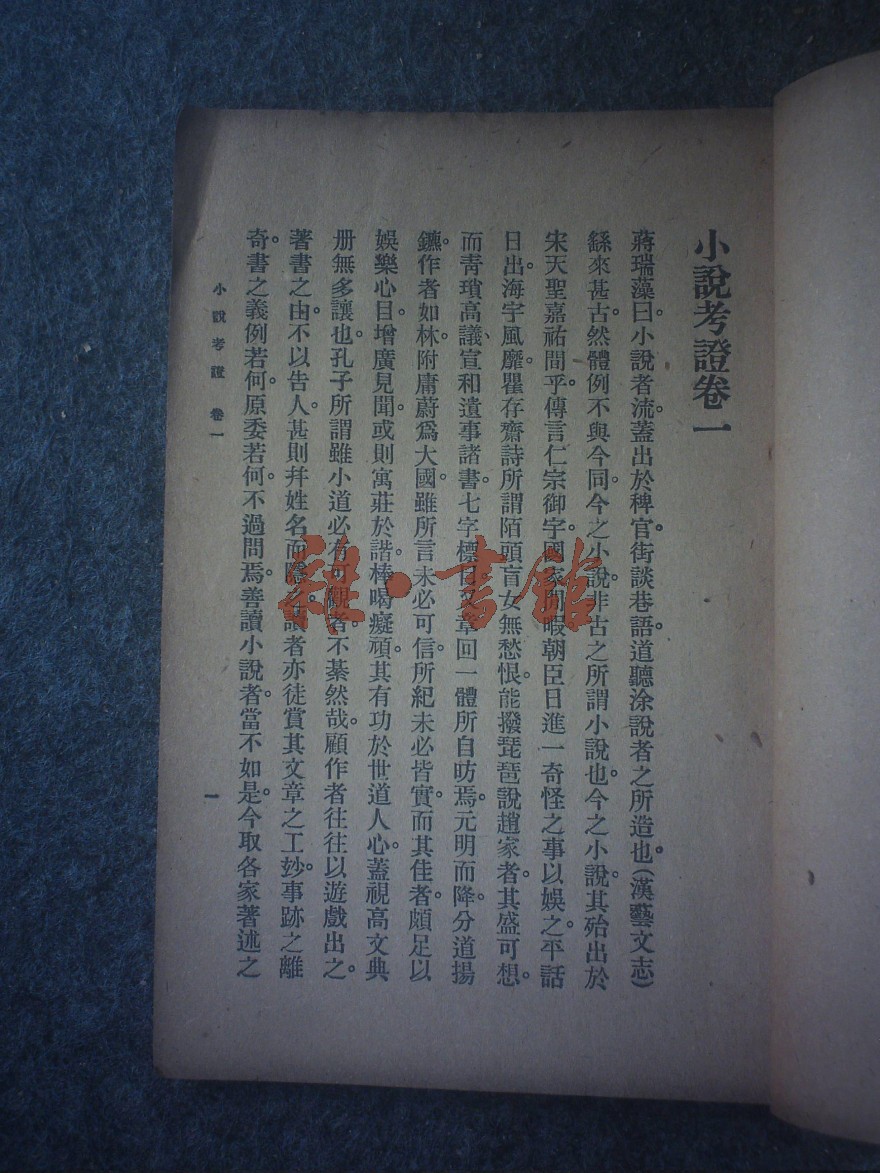 小說考證卷一
蔣瑞藻曰小說者流。蓋出於稗官。街談巷語。道聽涂說者之所造也。(漢藝文志)
繇來甚古。然體例不與今同。今之小說。非古之所謂小說也。今之小說。其殆出於
宋天聖嘉祐間乎。傳言仁宗御宇。國家閒暇。朝臣日進一奇怪之事以娛之。平話
日出。海宇風靡。瞿存齋詩所謂陌頭盲女無愁恨。能撥琵琶說趙家者。其盛可想。
而青瑣高議、宣和遺事諸書。七字標目。又章回一體所自昉焉。元明而降。分道揚
鑣。作者如林。附庸蔚爲大國。雖所言未必可信。所紀未必皆實。而其佳者。頗足以
娛樂心目。增廣見聞。或則寓莊於諧。棒喝癡頑。其有功於世道人心。蓋視高文典
册無多讓也。孔子所謂雖小道必有可觀者。不綦然哉。顧作者往往以遊戲出之。
著書之由。不以告人。甚則幷姓名而隱之。讀者亦徒賞其文章之工妙。事跡之離
奇。書之義例若何。原委若何。不過問焉。善讀小說者。當不如是。今取各家著述之
小說考證 卷一
一
雜·書館